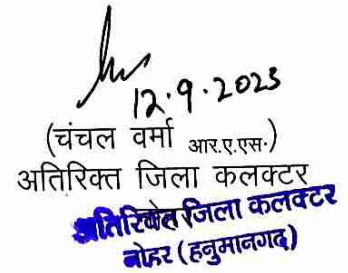 12.9.2023
(चंचल वर्मा आर.ए.एस.)
अतिरिक्त जिला कलक्टर
अतिरिक्त जिला कलक्टर
नोहर (हनुमानगढ़)